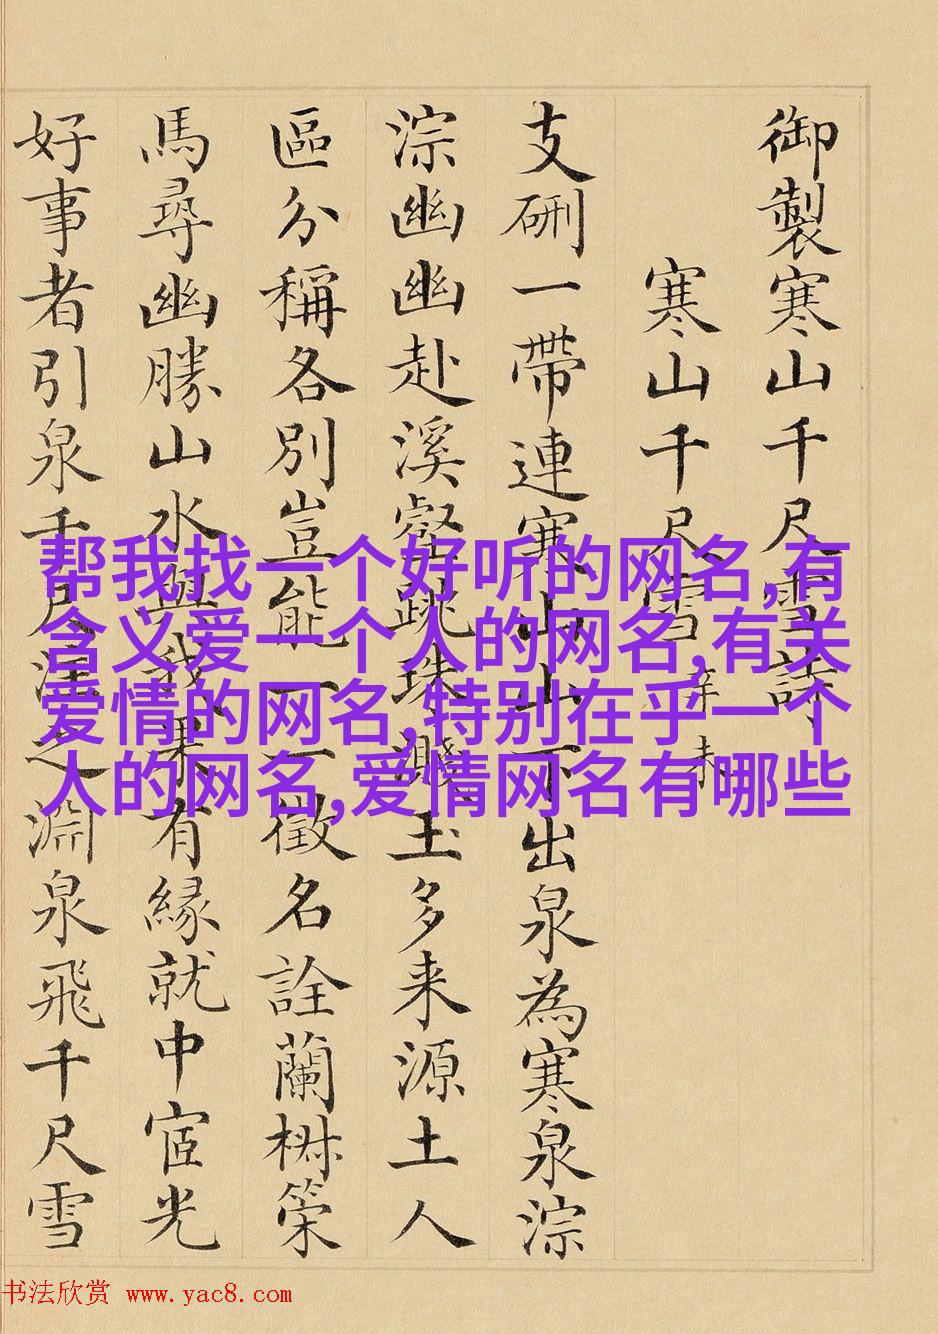 御製寒山千尺雪詩
寒山千尺雪 辛未
支硎一帶連寒山山下出泉為寒泉淙
淙幽幽赴溪壑跳珠濺玉多来源土人
區分稱各別豈能一一徵名詮蘭椒策
馬尋幽勝山水與我果有緣就中宧光
好事者引泉千尺注之淵泉飛千尺雪
帮我找一个好听的网名,有
含义爱一个人的网名,有关
爱情的网名,特别在乎一个
人的网名,爱情网名有哪些
书法欣赏 www.yac8.com